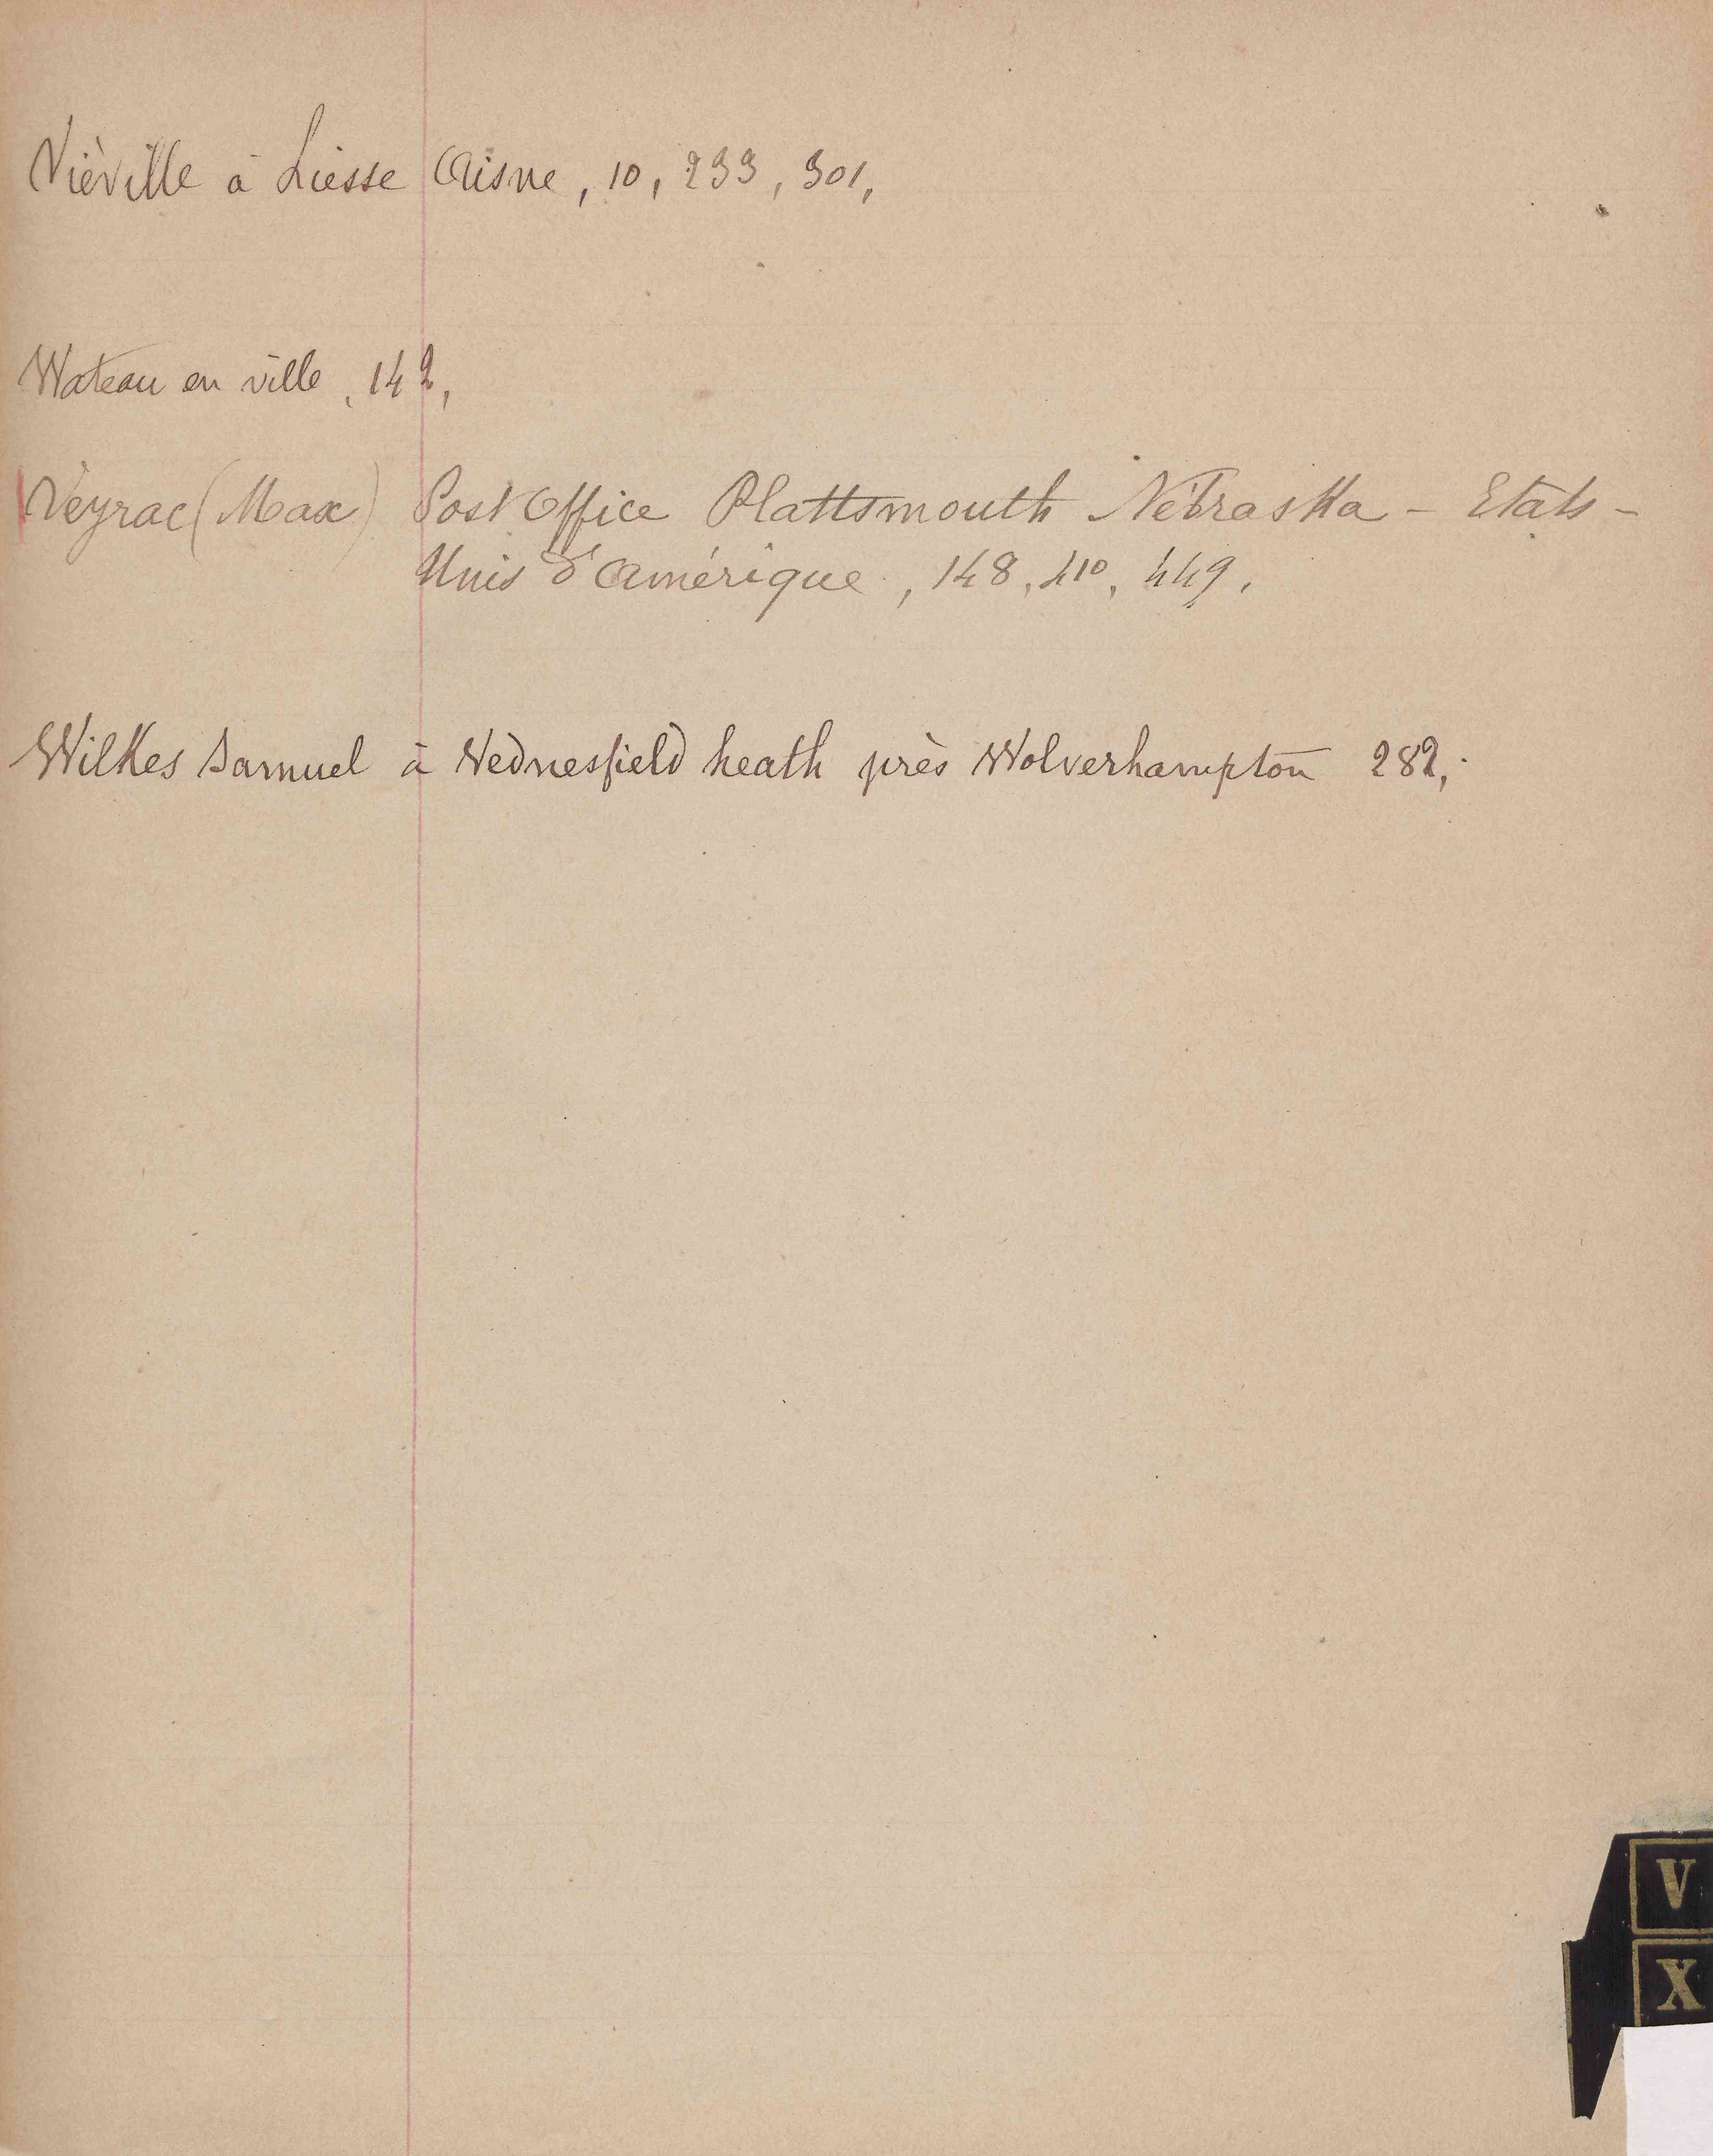 Viéville à Liesse Aisne, 10, 233, 301,
Wateau en ville, 142,
Veyrac (Max) Post Office Plattsmouth Nébraska - Etats-
Unis d'Amérique, 148, 410, 449.
Wilkes Samuel à Wednesfield heath près Wolverhampton 282,
V
X